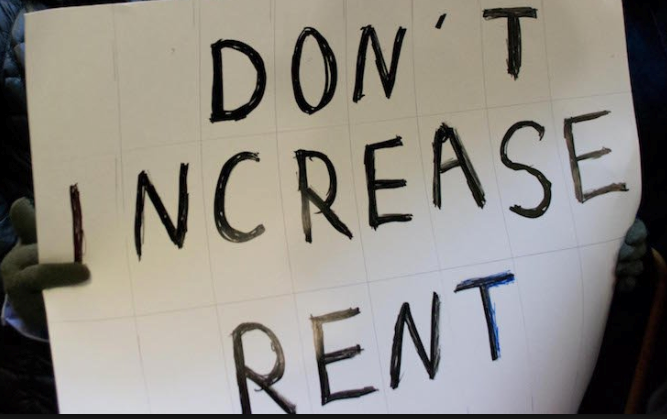 DON'T
INCREASE
RENT